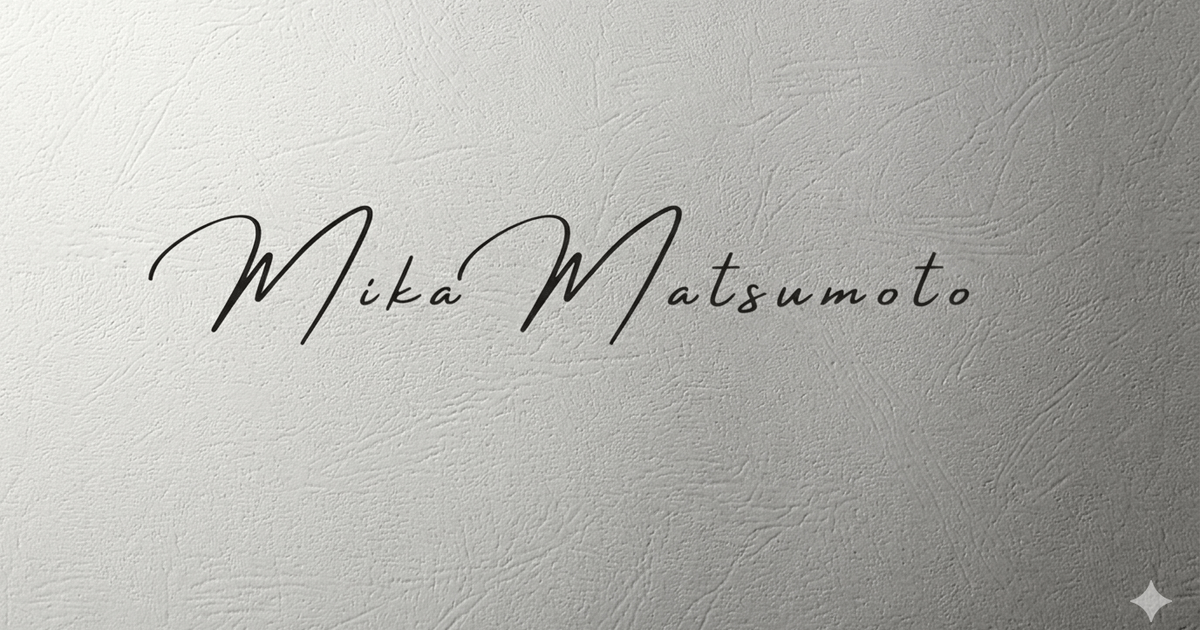 Mika Matsumoto